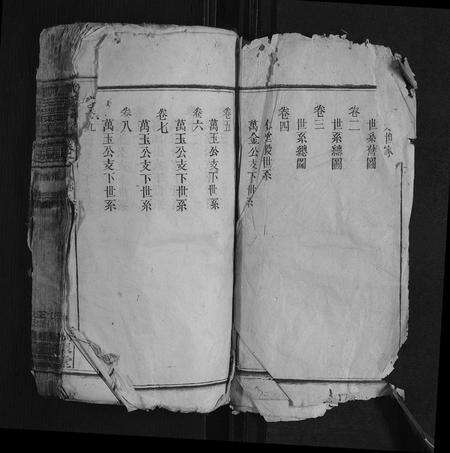 世系總圖
卷二
世系總圖
卷三
世系總圖
卷四
世系
萬金公支下世系
卷五
萬玉公支下世系
卷六
萬玉公支下世系
卷七
萬玉公支下世系
卷八
萬玉公支下世系